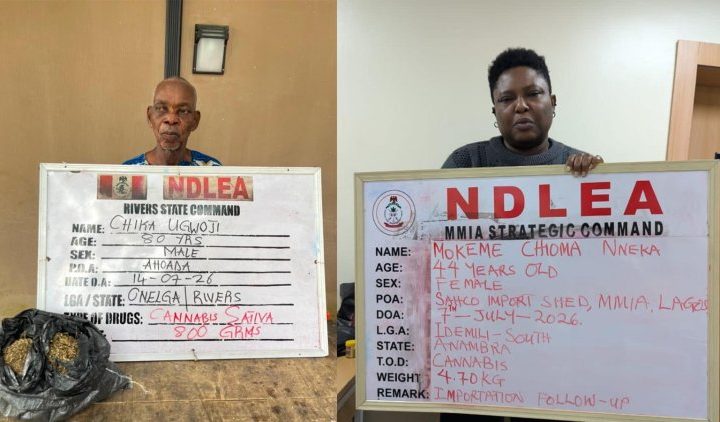 NDLEA
RIVERS STATE COMMAND
NAME: CHIKA UGWOJI
AGE: 80 YRS
SEX: MALE
P.O.A: AHOADA
DATE O.A: 14-07-26
LGA / STATE: ONELGA / RIVERS
TYPE OF DRUGS: CANNABIS SATIVA
800 GRMS
NDLEA
MMIA STRATEGIC COMMAND
NAME: MOKEME CHIOMA NNEKA
AGE: 44 YEARS OLD
SEX: FEMALE
POA: SAHCO IMPORT SHED, MMIA, LAGOS
DOA: 7TH-JULY-2026.
L.G.A: IDEMILI-SOUTH
STATE: ANAMBRA
T.O.D: CANNABIS
WEIGHT: 4.70KG
REMARK: IMPORTATION FOLLOW-UP